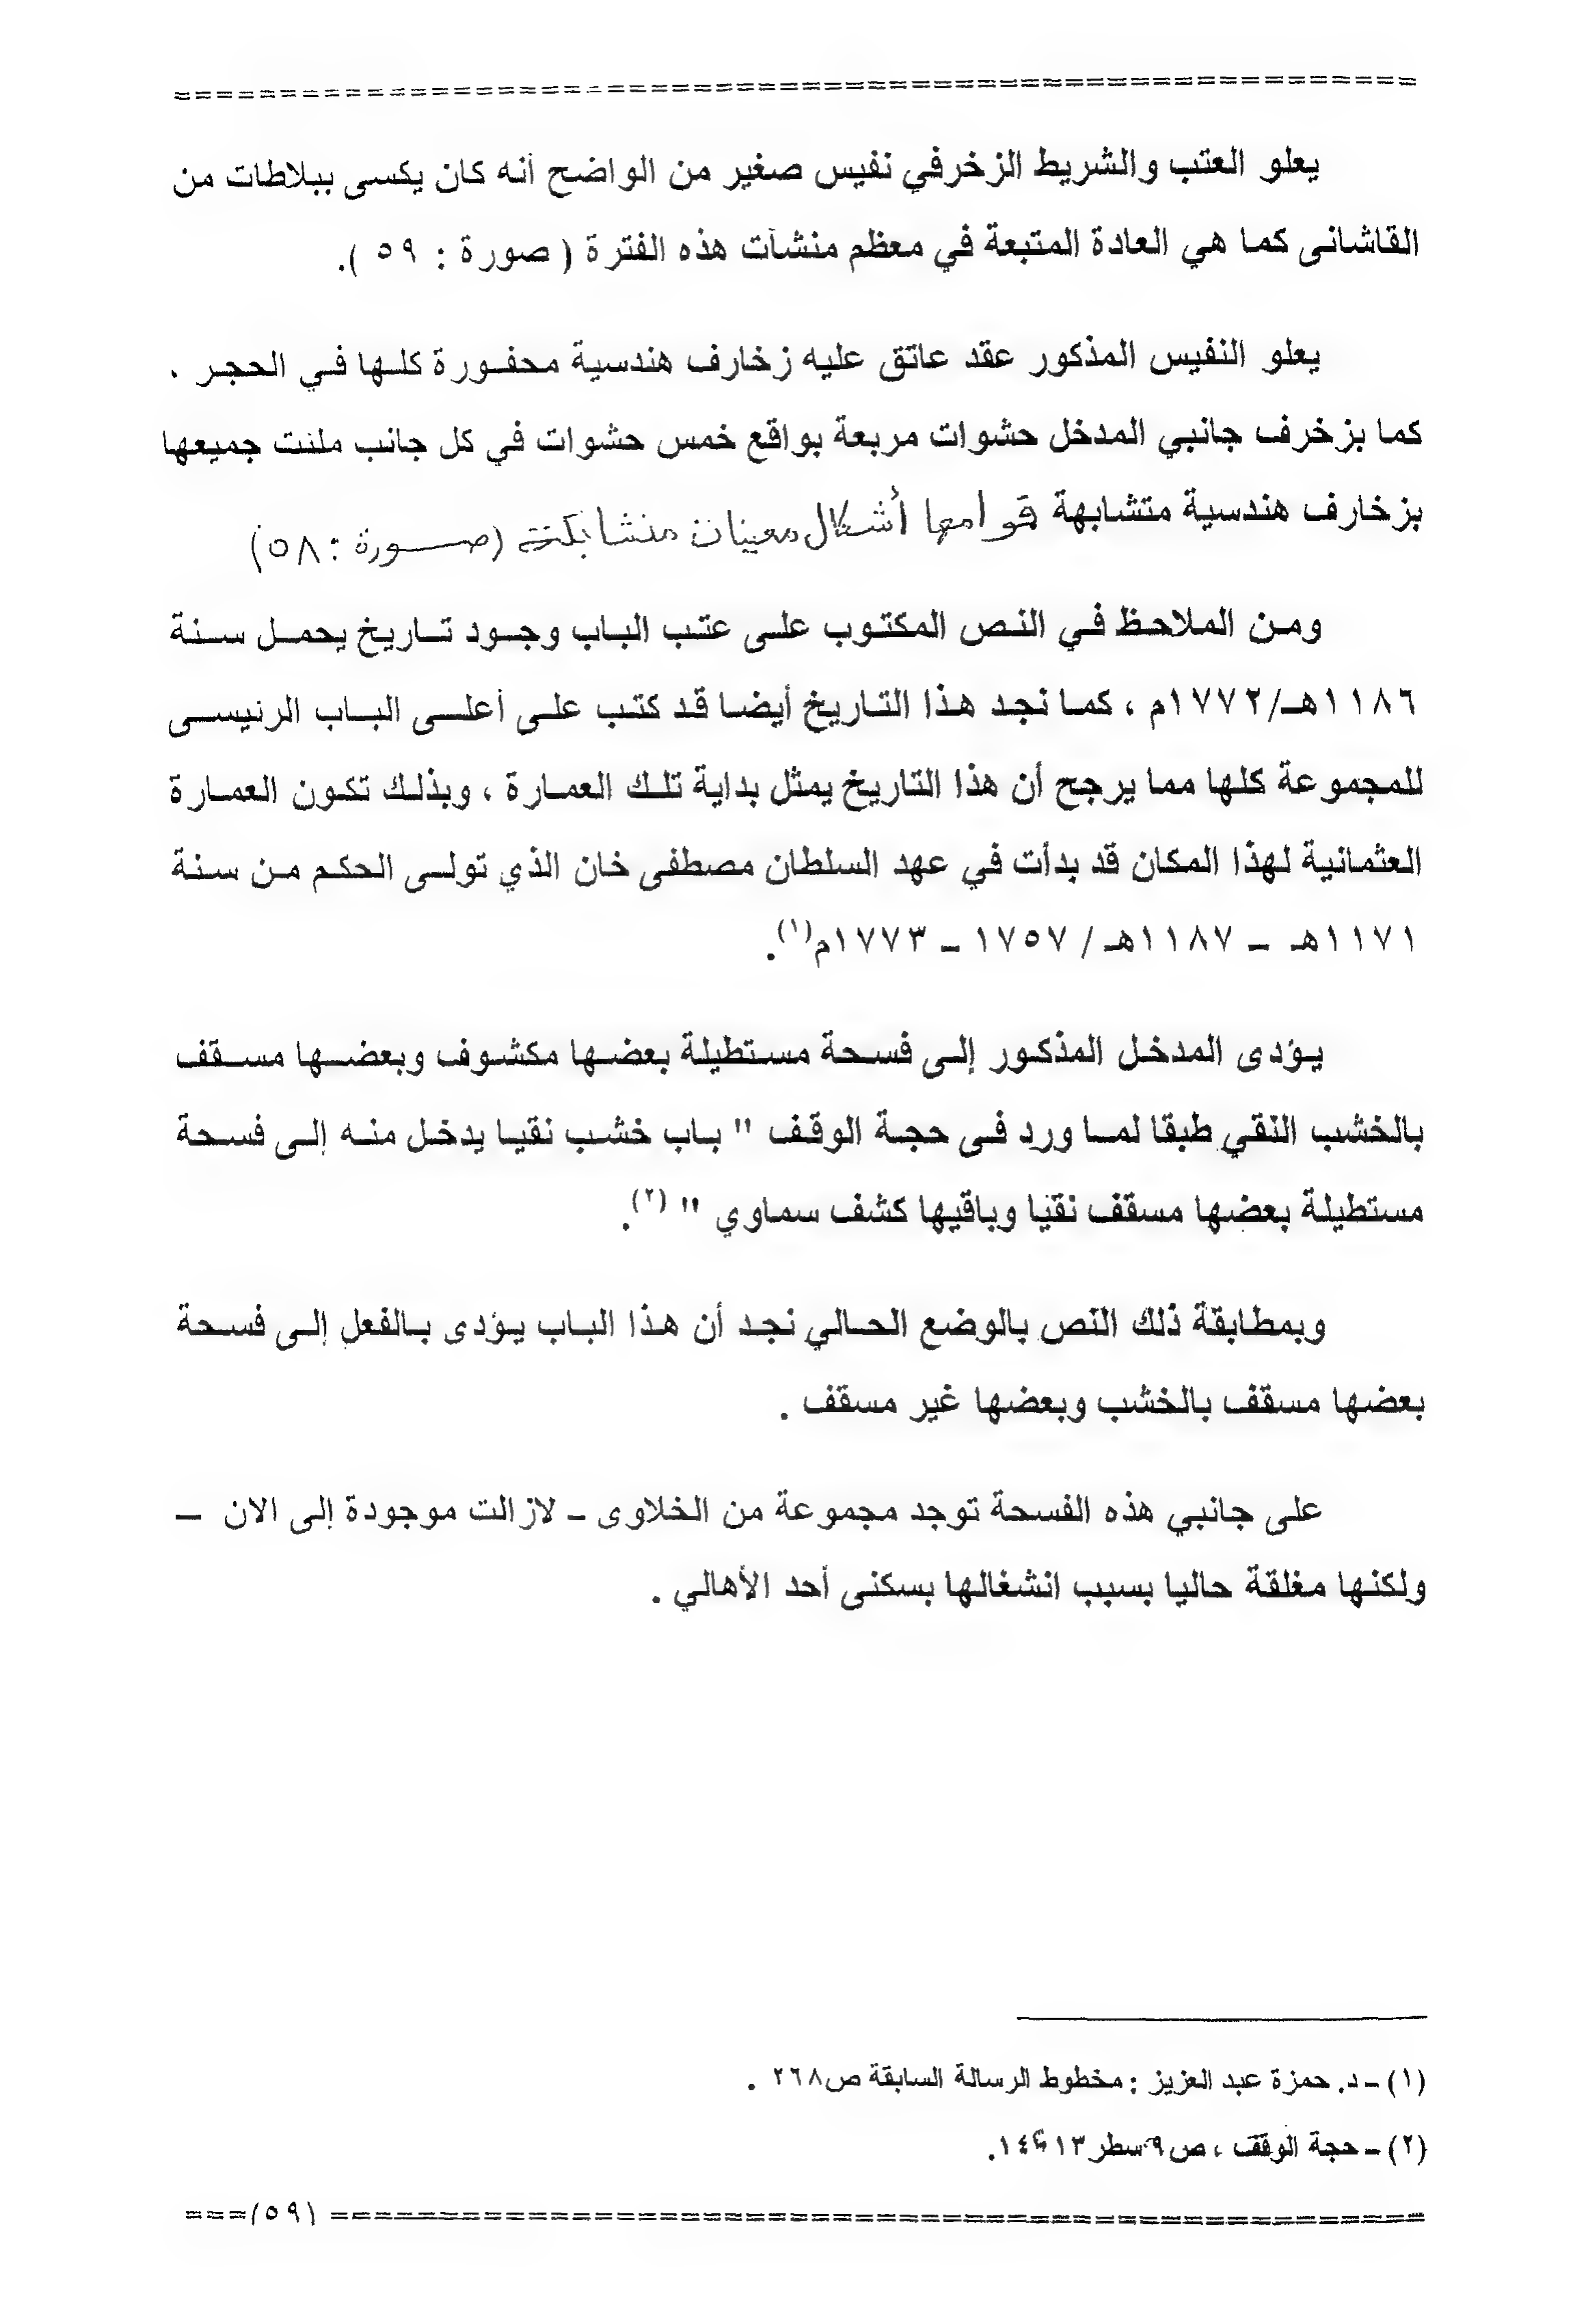 يعلو العتب والشريط الزخرفي نفيس صغير من الواضح أنه كان يكسى ببلاطات من
القاشانى كما هي العادة المتبعة في معظم منشآت هذه الفترة ( صورة : ٥٩ ).
يعلو النفيس المذكور عقد عاتق عليه زخارف هندسية محفورة كلها في الحجر .
كما بزخرف جانبي المدخل حشوات مربعة بواقع خمس حشوات في كل جانب ملئت جميعها
بزخارف هندسية متشابهة قوامها أشكال معينات متشابكة (صورة : ٥٨)
ومن الملاحظ في النص المكتوب على عتب الباب وجود تاريخ يحمل سنة
١١٨٦هـ/١٧٧٢م ، كما نجد هذا التاريخ أيضا قد كتب على أعلى الباب الرئيسى
للمجموعة كلها مما يرجح أن هذا التاريخ يمثل بداية تلك العمارة ، وبذلك تكون العمارة
العثمانية لهذا المكان قد بدأت في عهد السلطان مصطفى خان الذي تولى الحكم من سنة
١١٧١هـ – ١١٨٧هـ / ١٧٥٧ – ١٧٧٣م(١).
يؤدى المدخل المذكور إلى فسحة مستطيلة بعضها مكشوف وبعضها مسقف
بالخشب النقي طبقا لما ورد فى حجة الوقف " باب خشب نقيا يدخل منه إلى فسحة
مستطيلة بعضها مسقف نقيا وباقيها كشف سماوي " (٢).
وبمطابقة ذلك النص بالوضع الحالي نجد أن هذا الباب يؤدى بالفعل إلى فسحة
بعضها مسقف بالخشب وبعضها غير مسقف .
على جانبي هذه الفسحة توجد مجموعة من الخلاوى – لازالت موجودة إلى الان –
ولكنها مغلقة حاليا بسبب انشغالها بسكنى أحد الأهالي .
(١) – د. حمزة عبد العزيز : مخطوط الرسالة السابقة ص٢٦٨ .
(٢) – حجة الوقف ، ص٩ سطر ١٣، ١٤.
(٥٩)